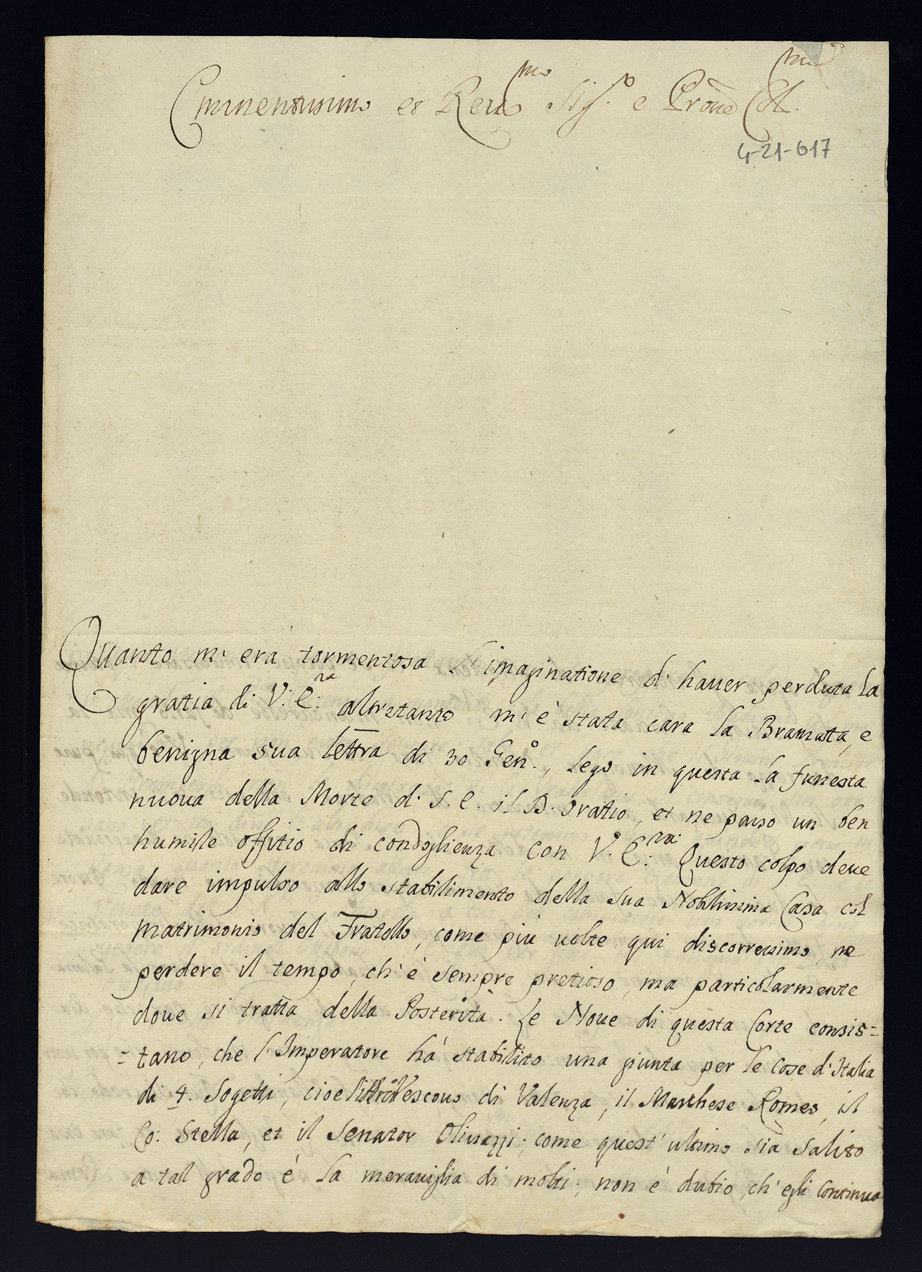 Eminentissimo et Reu.mo Sig.r e Pròne Col.mo
4-21-617
Quanto m'era tormentosa l'imaginatione d'hauer perduta la
gratia di V: E:ra altretanto m'è stata cara la Bramata, e
benigna sua lettra di 30 Gen.o, lego in questa la funesta
nuoua della Morte d. S. E. il D. Oratio, et ne passo un ben
humile offitio di condoglienza con V. E:za: Questo colpo deue
dare impulso allo stabilimento della sua Nobilissima Casa col
matrimonio del Fratello, come più uolte qui discorressimo, ne
perdere il tempo, ch'è sempre pretioso, ma particolarmente
doue si tratta della Posterità. Le Noue di questa Corte consis=
=tano, che l'Imperatore ha' stabilito una giunta per le cose d'Italia
di 4. Sogetti, cioe l'Arciuescouo di Valenza, il Marchese Romeo, il
Co: Stella, et il Senator Oliuazzi; come quest'ultimo sia salito
a tal grado è la merauiglia di molti; non è dubio, ch'egli continuo